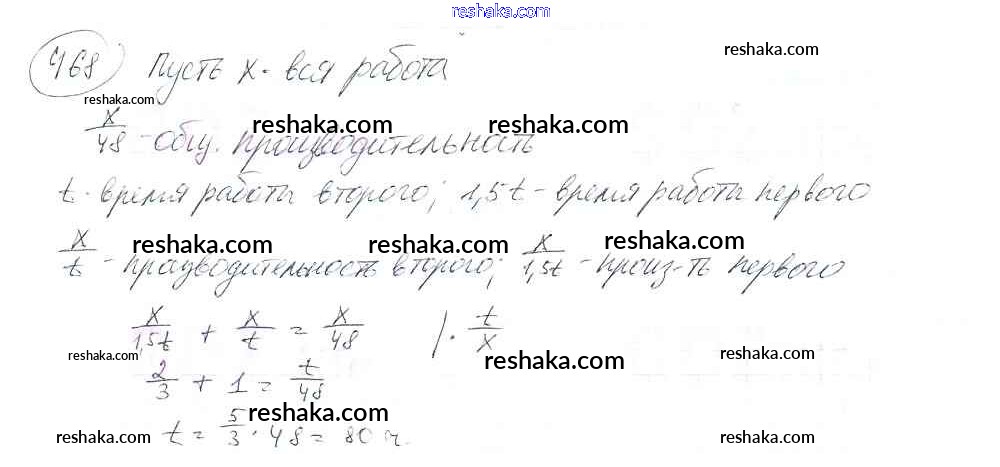 reshaka.com
468 Пусть x - вся работа
reshaka.com
reshaka.com
x/48 - общ. производительность
reshaka.com reshaka.com
t - время работы второго; 1,5t - время работы первого
reshaka.com reshaka.com reshaka.com
x/t - производительность второго; x/1,5t - произ-ть первого
x/1,5t + x/t = x/48 | · t/x
reshaka.com reshaka.com reshaka.com
2/3 + 1 = t/48
reshaka.com
t = 5/3 · 48 = 80 ч.
reshaka.com reshaka.com